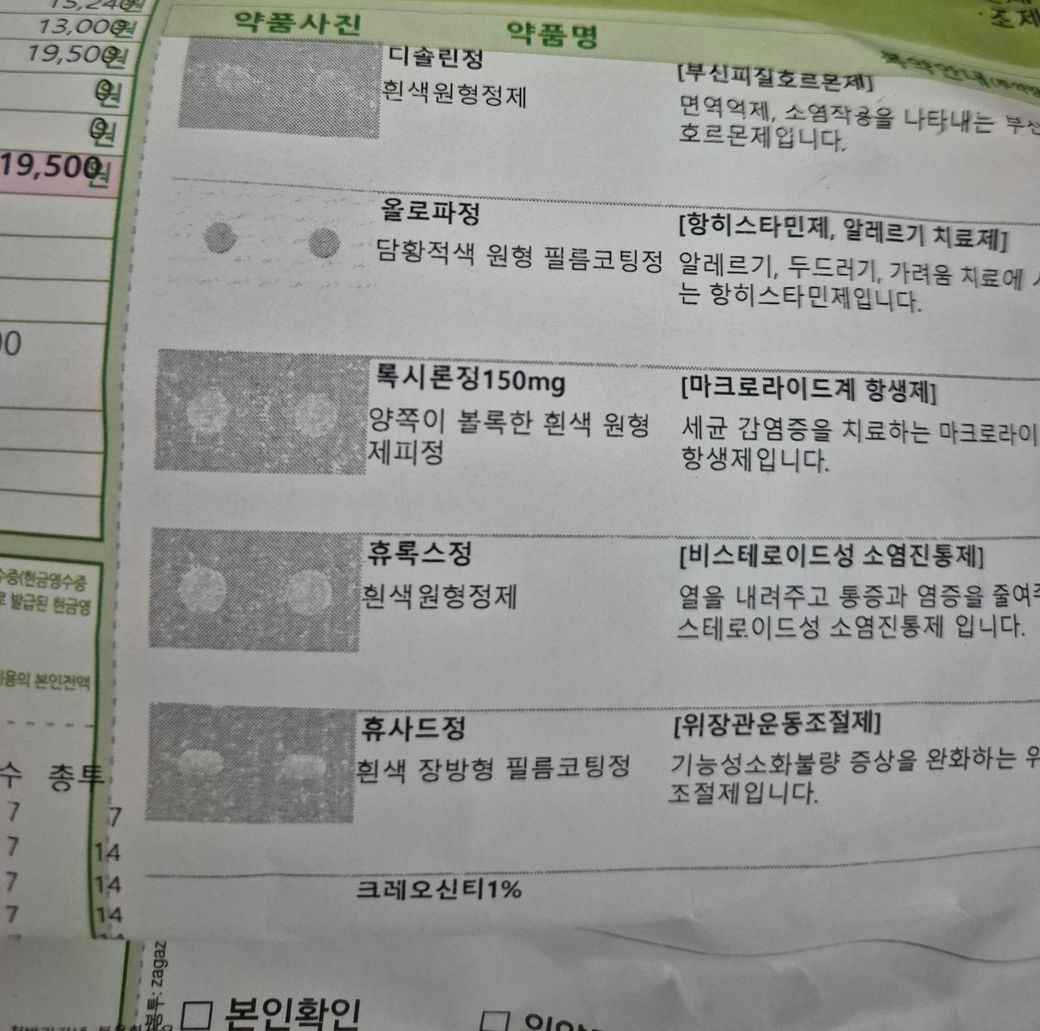 13,000원
19,500원
0원
0원
19,500원
00
수증(현금영수증
로 발급된 현금영
비용의 본인전액
수 총투
7 7
7 14
7 14
7 14
약품사진 약품명 복약안내
조제
디솔린정
흰색원형정제
[부신피질호르몬제]
면역억제, 소염작용을 나타내는 부신
호르몬제입니다.
올로파정
담황적색 원형 필름코팅정
[항히스타민제, 알레르기 치료제]
알레르기, 두드러기, 가려움 치료에
는 항히스타민제입니다.
록시론정150mg
양쪽이 볼록한 흰색 원형
제피정
[마크로라이드계 항생제]
세균 감염증을 치료하는 마크로라이
항생제입니다.
휴록스정
흰색원형정제
[비스테로이드성 소염진통제]
열을 내려주고 통증과 염증을 줄여주
스테로이드성 소염진통제 입니다.
휴사드정
흰색 장방형 필름코팅정
[위장관운동조절제]
기능성소화불량 증상을 완화하는 위
조절제입니다.
크레오신티1%
봉투: zagaz
□ 본인확인